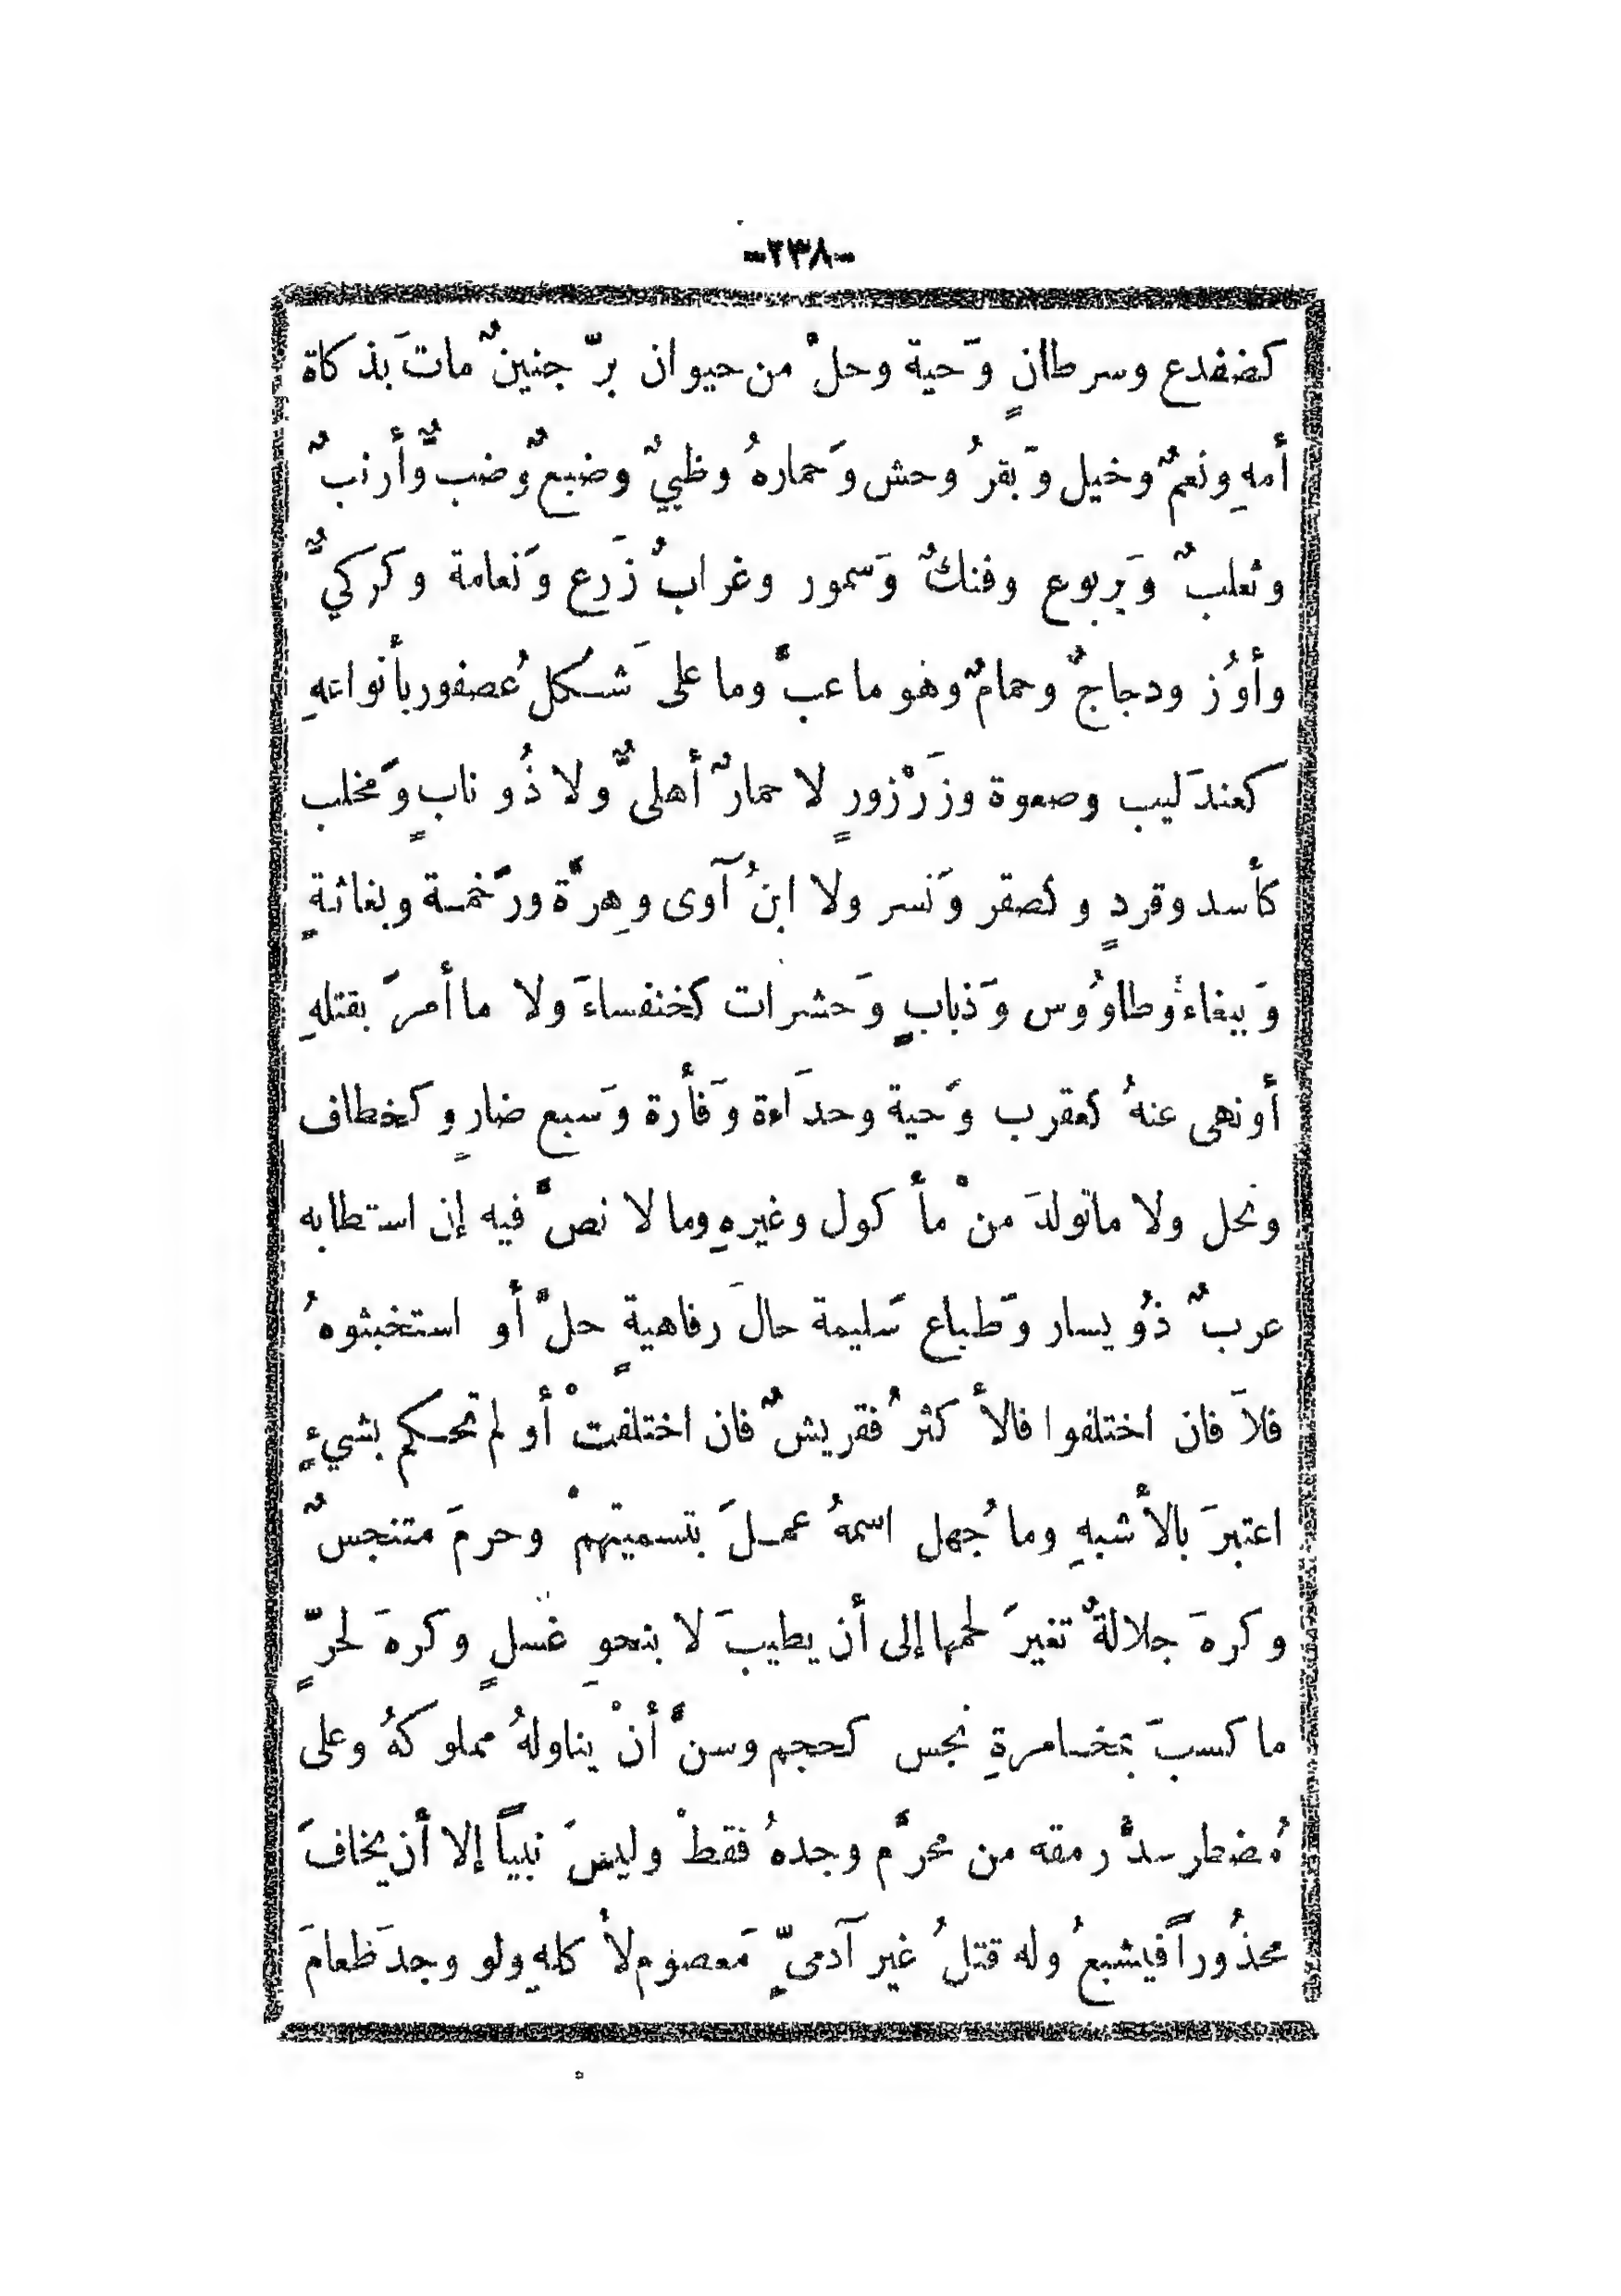 -٢٣٨-
كضفدع وسرطانٍ وَحية وحلْ من حيوان برّ جنينٌ ماتَ بذكاة
أمهِ ونعمٌ وخيل وَبقرُ وحش وَحمارهُ وظبيٌ وضبعٌ وضبٌّ وأرنبٌ
وثعلبٌ وَيربوع وفنكٌ وَسمور وغرابُ زَرع وَنعامة وكركيٌّ
وأوُز ودجاجٌ وحمامٌ وهو ما عبَّ وما على شَكل عُصفور بأنواعهِ
كعندَليب وصعوة وزَرْزورٍ لا حمارٌ أهليٌّ ولا ذُو نابٍ وَمخلب
كأسد وقردٍ وكصقر وَنسر ولا ابنُ آوى وهِرَّة ورَخمة وبغاثةٍ
وَببغاءَ وطاوُوس وَذبابٍ وَحشرات كخنفساءَ ولا ما أمرَ بقتلهِ
أو نهى عنهُ كعقرب وَحية وحدَاءة وَفأرة وَسبع ضارٍ وكخطاف
ونحل ولا ماتولدَ منْ مأكول وغيرهِ وما لا نصَّ فيه إن استطابه
عربٌ ذوُ يسار وَطباع سَليمة حالَ رفاهيةٍ حلَّ أو استخبثوهُ
فلاَ فان اختلفوا فالأكثرُ فقريشٌ فان اختلفتْ أو لم تحكم بشيءٍ
اعتبرَ بالأشبهِ وما جُهل اسمهُ عملَ بتسميتهمْ وحرمَ متنجسٌ
وكرهَ جلالةٌ تغيرَ لحمها إلى أن يطيبَ لا بنحوِ غسلٍ وكرهَ لحرٍّ
ما كسبَ بمخامرةِ نجس كحجم وسنَّ أنْ يناولهُ مملوكهُ وعلى
مُضطر سدُّ رمقه من محرَّم وجدهُ فقطْ وليسَ نبياً إلا أن يخافَ
محذُوراً فيشبعُ وله قتلُ غير آدميٍّ مَعصوم لأكلهِ ولو وجدَ طَعامَ